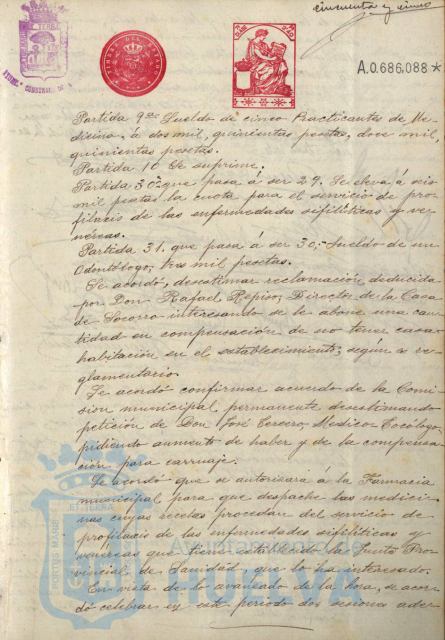 cincuenta y cinco
TIMBRE DEL ESTADO
A.0.686,088*
Partida 9ª Sueldo de cinco Practicantes de Me-
dicina, á dos mil, quinientas pesetas, doce mil,
quinientas pesetas.
Partida 10 Se suprime.
Partida 30ª que pasa á ser 29. Se eleva á seis
mil pesetas la cuota para el servicio de pro-
filaxis de las enfermedades sifilíticas y ve-
néreas.
Partida 31. que pasa á ser 30,- Sueldo de un
Odontólogo, tres mil pesetas.
Se acordó, desestimar reclamación deducida
por Don Rafael Repiso, Director de la Casa
de Socorro interesando se le abone una can-
tidad en compensación de no tener casa
habitación en el establecimiento, según es re-
glamentario.
Se acordó confirmar acuerdo de la Comi-
sion municipal permanente desestimando
petición de Don José Tercero, Medico-Tocólogo,
pidiendo aumento de haber y de la compensa-
ción para carruaje.
Se acordó que se autorizará á la Farmacia
municipal para que despache las medici-
nas cuyas recetas procedan del servicio de
profilaxis de las enfermedades sifilíticas y
venéreas que tiene establecido la Junta Pro-
vincial de Sanidad, que lo ha interesado.
En vista de lo avanzado de la hora, se acor-
dó celebrar en este período dos sesiones ade-
PORTUS MARIS ET TERRAE
HUELVA